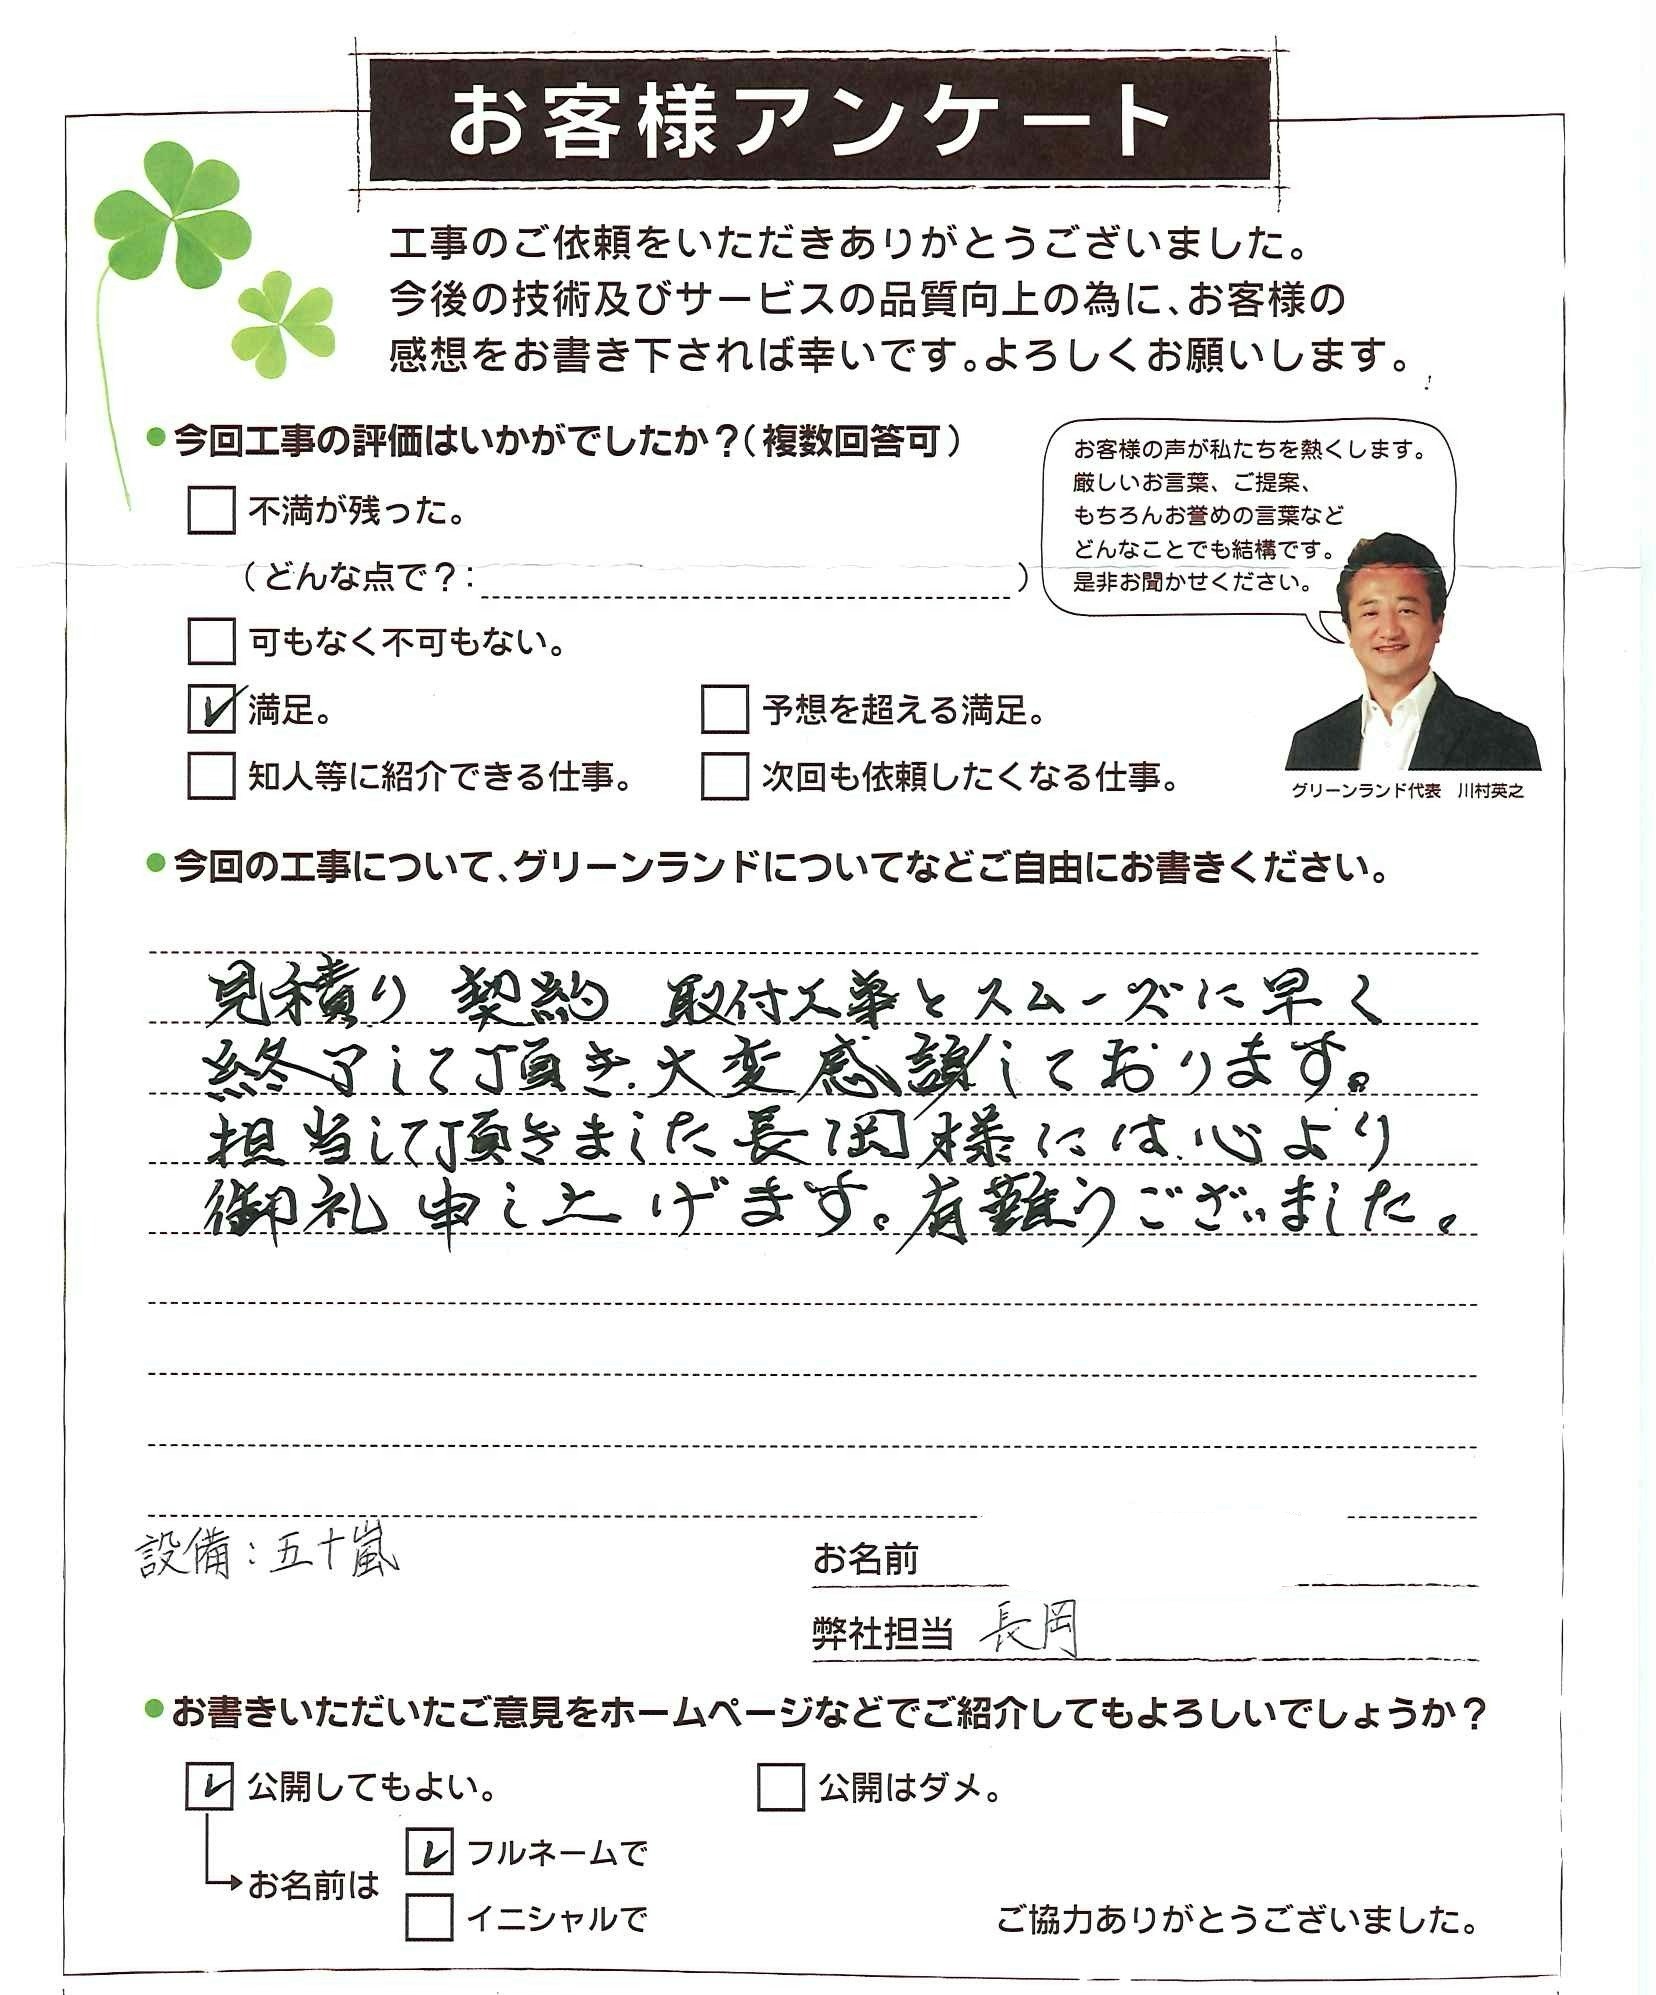 お客様アンケート
工事のご依頼をいただきありがとうございました。
今後の技術及びサービスの品質向上の為に、お客様の
感想をお書き下されば幸いです。よろしくお願いします。
●今回工事の評価はいかがでしたか？（複数回答可）
お客様の声が私たちを熱くします。
厳しいお言葉、ご提案、
もちろんお誉めの言葉など
どんなことでも結構です。
是非お聞かせください。
不満が残った。
（どんな点で？：　）
可もなく不可もない。
満足。
予想を超える満足。
知人等に紹介できる仕事。
次回も依頼したくなる仕事。
グリーンランド代表　川村英之
●今回の工事について、グリーンランドについてなどご自由にお書きください。
見積り 契約 取付工事とスムーズに早く
終了して頂き大変感謝しております。
担当して頂きました長岡様には心より
御礼申し上げます。有難うございました。
設備：五十嵐
お名前
弊社担当 長岡
●お書きいただいたご意見をホームページなどでご紹介してもよろしいでしょうか？
公開してもよい。
公開はダメ。
お名前は
フルネームで
イニシャルで
ご協力ありがとうございました。